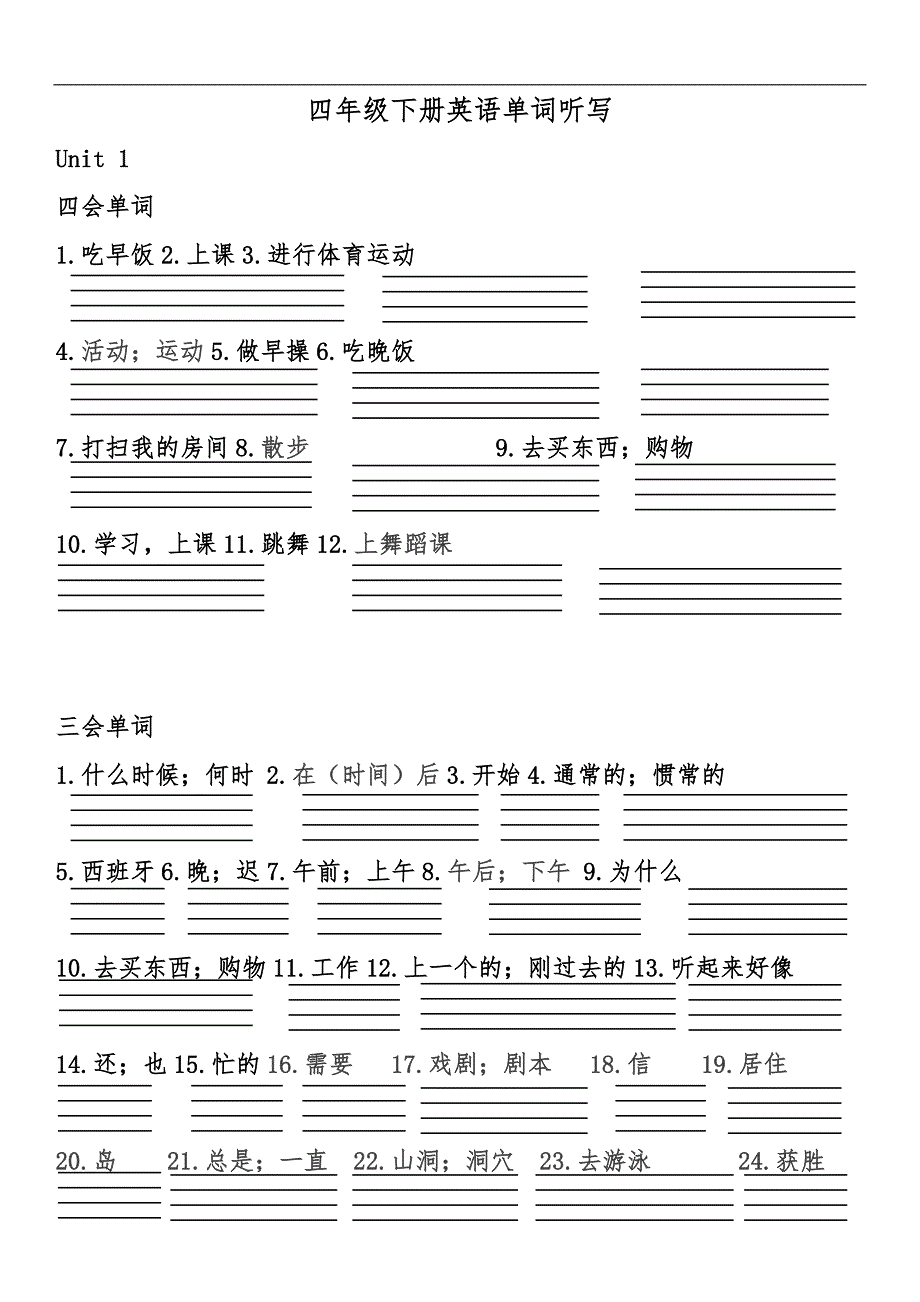 四年级下册英语单词听写
Unit 1
四会单词
1.吃早饭2.上课3.进行体育运动
4.活动；运动5.做早操6.吃晚饭
7.打扫我的房间8.散步 9.去买东西；购物
10.学习，上课11.跳舞12.上舞蹈课
三会单词
1.什么时候；何时 2.在（时间）后3.开始4.通常的；惯常的
5.西班牙6.晚；迟7.午前；上午8.午后；下午 9.为什么
10.去买东西；购物11.工作12.上一个的；刚过去的13.听起来好像
14.还；也15.忙的16.需要 17.戏剧；剧本 18.信 19.居住
20.岛 21.总是；一直 22.山洞；洞穴 23.去游泳 24.获胜